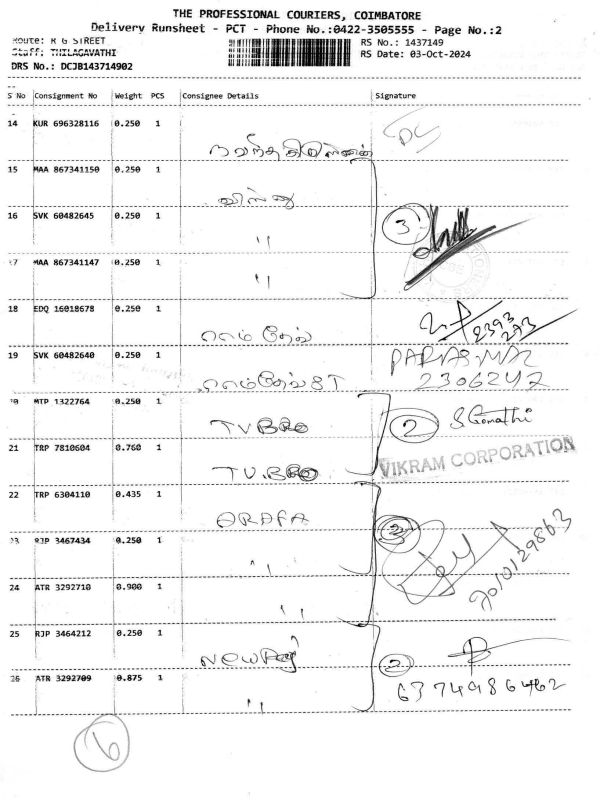 THE PROFESSIONAL COURIERS, COIMBATORE
Delivery Runsheet - PCT - Phone No.:0422-3505555 - Page No.:2
Route: R G STREET
RS No.: 1437149
Staff: THILAGAVATHI
RS Date: 03-Oct-2024
DRS No.: DCJB143714902
S No Consignment No Weight PCS Consignee Details Signature
14 KUR 696328116 0.250 1
15 MAA 867341150 0.250 1
16 SVK 60482645 0.250 1
" 3
17 MAA 867341147 0.250 1
"
18 EDQ 16018678 0.250 1
எம் தேவ்
2393
293
19 SVK 60482640 0.250 1
எம்தேவ் ST
2306242
20 MTP 1322764 0.250 1
TV BRO 2 S Gomathi
21 TRP 7810604 0.760 1
TV.BRO
VIKRAM CORPORATION
22 TRP 6304110 0.435 1
ARAFA
23 RJP 3467434 0.250 1
"
9010129863
24 ATR 3292710 0.900 1
"
25 RJP 3464212 0.250 1
2
26 ATR 3292709 0.875 1
"
6374986462
6